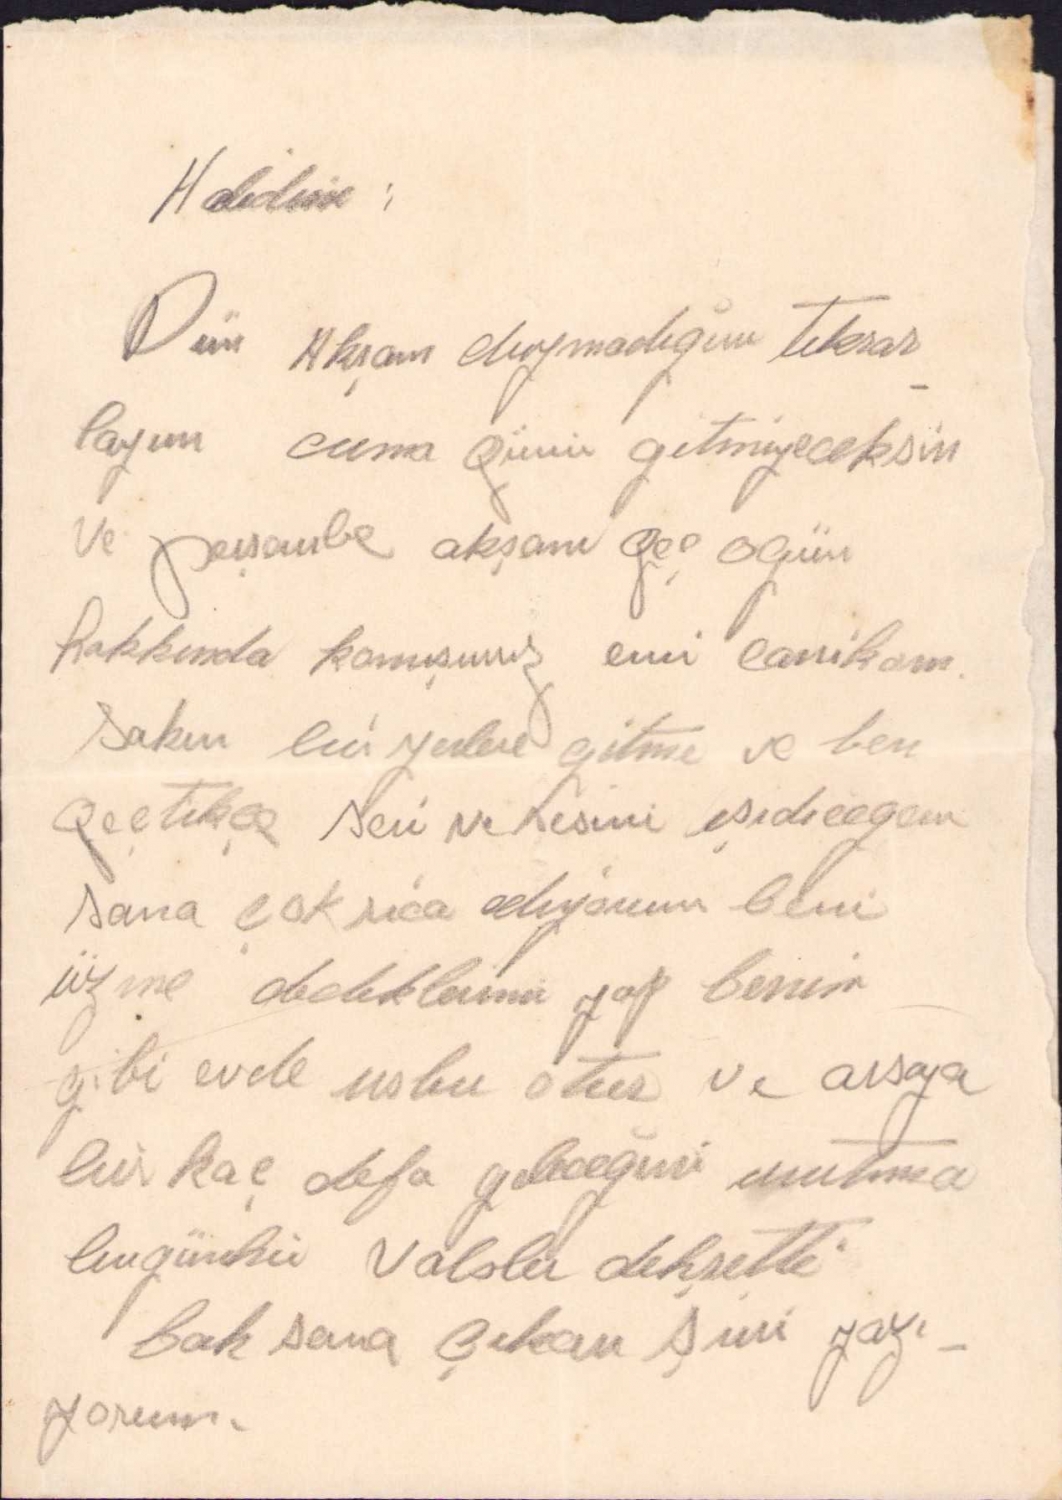 Habibim :
Dün Akşam duymadığını tekrar_
layım cuma günü gitmiyeceksin
ve perşambe akşam geç ogün
hakkında konuşuruz emi canikom.
Sakın bir yerlere gitme ve ben
geçtikçe seri ve sesini işidicegem
sana çok rica ediyorum beni
üzme dediklerimi yap benim
gibi evde uslu otur ve arsaya
bir kaç defa geleceğini unutma
bugünkü Valsler dehşetti
bak sana çıkan Şiiri yazı_
yorum.